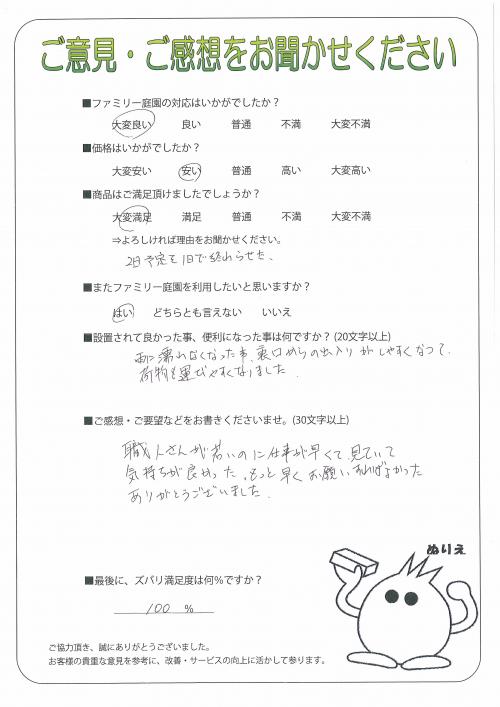 ご意見・ご感想をお聞かせください
■ファミリー庭園の対応はいかがでしたか？
大変良い 良い 普通 不満 大変不満
■価格はいかがでしたか？
大変安い 安い 普通 高い 大変高い
■商品はご満足頂けましたでしょうか？
大変満足 満足 普通 不満 大変不満
⇒よろしければ理由をお聞かせください。
2日予定を1日で終わらせた、
■またファミリー庭園を利用したいと思いますか？
はい どちらとも言えない いいえ
■設置されて良かった事、便利になった事は何ですか？(20文字以上)
雨に濡れなくなった事、裏口からの出入りがしやすくなって、
荷物も運びやすくなりました.
■ご感想・ご要望などをお書きくださいませ。(30文字以上)
職人さんが若いのに仕事が早くて、見ていて
気持ちが良かった。もっと早くお願いすればよかった
ありがとうございました.
ぬりえ
■最後に、ズバリ満足度は何％ですか？
100 ％
ご協力頂き、誠にありがとうございました。
お客様の貴重な意見を参考に、改善・サービスの向上に活かして参ります。